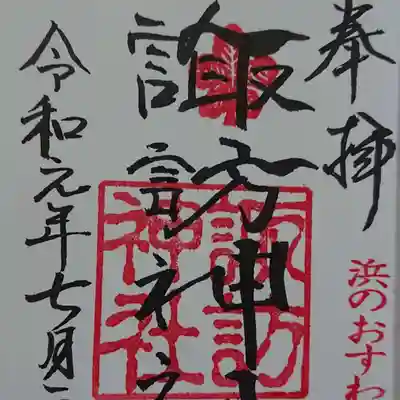 奉拝
浜のおすわ
諏訪神社
諏訪神社
令和元年七月